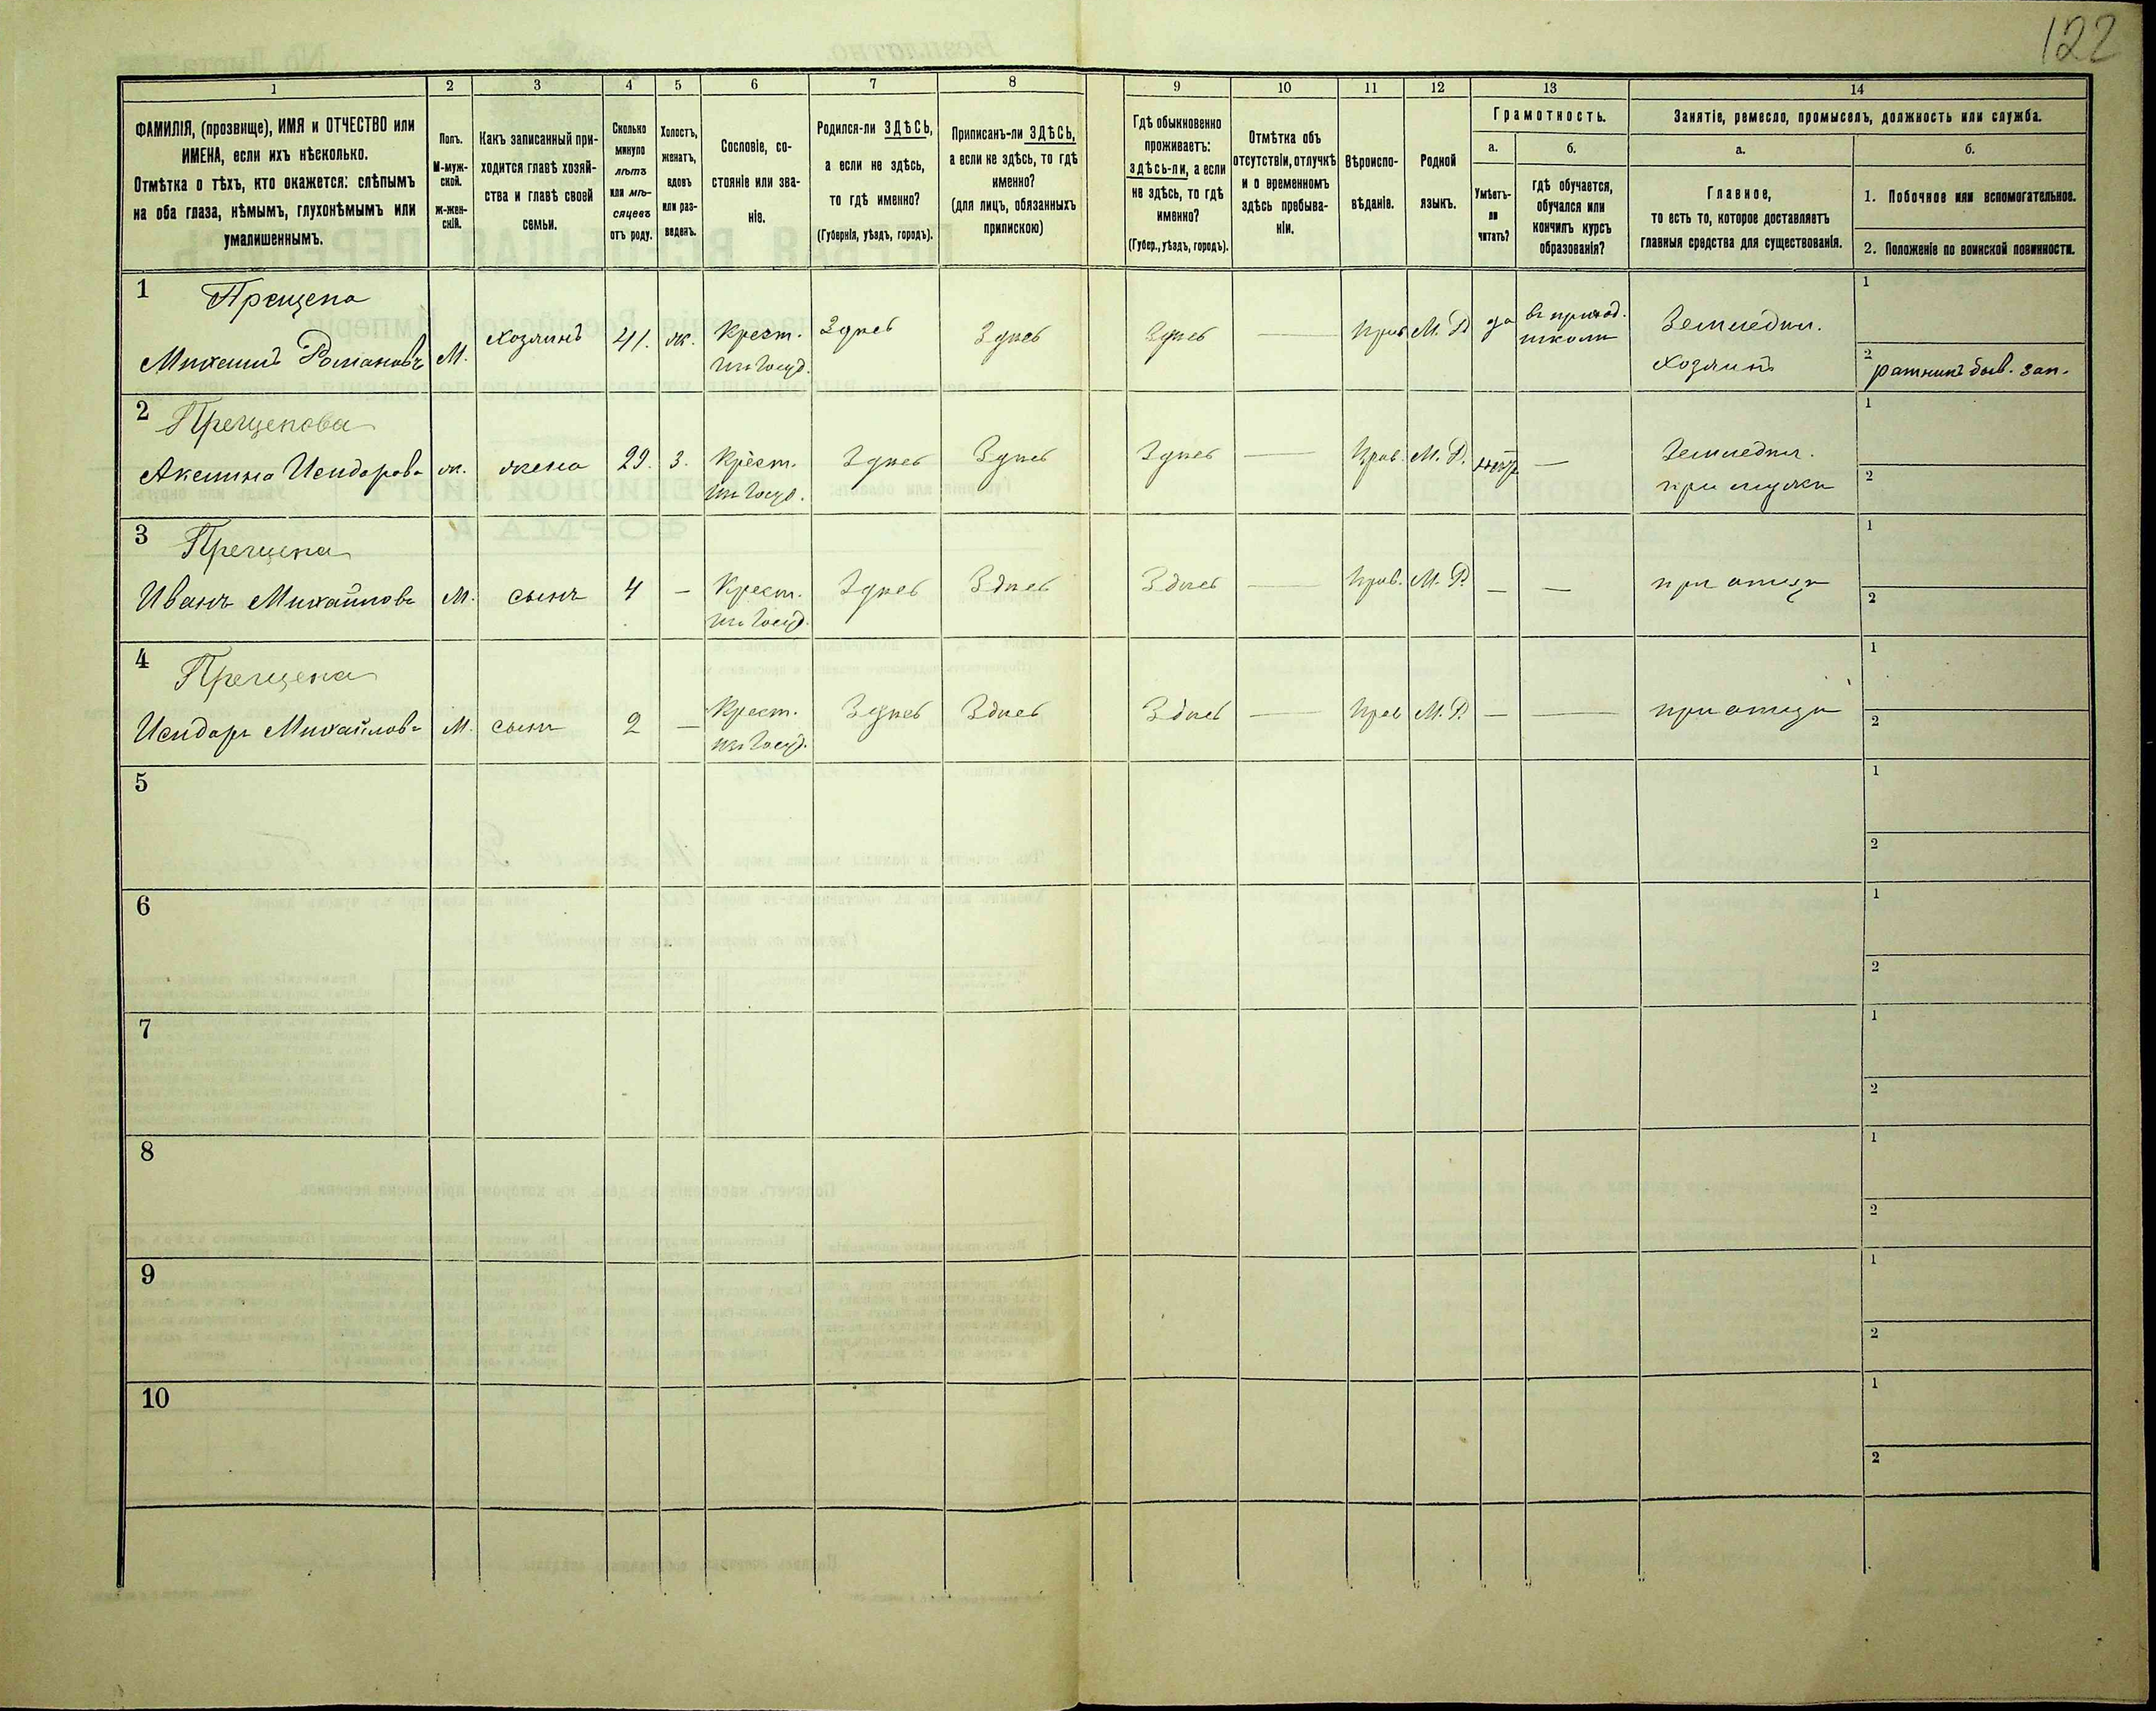 122
1 2 3 4 5 6 7 8 9 10 11 12 13 14
ФАМИЛІЯ, (прозвище), ИМЯ и ОТЧЕСТВО или
ИМЕНА, если ихъ нѣсколько.
Отмѣтка о тѣхъ, кто окажется: слѣпымъ
на оба глаза, нѣмымъ, глухонѣмымъ или
умалишеннымъ.
Полъ.
М-муж-
ской.
Ж-жен-
скій.
Какъ записанный при-
ходится главѣ хозяй-
ства и главѣ своей
семьи.
Сколько
минуло
лѣтъ
или мѣ-
сяцевъ
отъ роду.
Холостъ,
женатъ,
вдовъ
или раз-
веденъ.
Сословіе, со-
стояніе или зва-
ніе.
Родился-ли ЗДѢСЬ,
а если не здѣсь,
то гдѣ именно?
(Губернія, уѣздъ, городъ).
Приписанъ-ли ЗДѢСЬ,
а если не здѣсь, то гдѣ
именно?
(для лицъ, обязанныхъ
припискою)
Гдѣ обыкновенно
проживаетъ:
здѣсь-ли, а если
не здѣсь, то гдѣ
именно?
(Губер., уѣздъ, городъ).
Отмѣтка объ
отсутствіи, отлучкѣ
и о временномъ
здѣсь пребыва-
ніи.
Вѣроиспо-
вѣданіе.
Родной
языкъ.
Грамотность.
а.
Умѣетъ-
ли
читать?
б.
гдѣ обучается,
обучался или
кончилъ курсъ
образованія?
Занятіе, ремесло, промыселъ, должность или служба.
а.
Главное,
то есть то, которое доставляетъ
главныя средства для существованія.
б.
1. Побочное или вспомогательное.
2. Положеніе по воинской повинности.
1 Прещепа
Михаилъ Романовъ М. хозяинъ 41. ж. Крест. Здѣсь Здѣсь Здѣсь — Прав М. Р. да въ приход. Земледѣл. 1
изъ Госуд. школѣ хозяинъ 2 ратникъ быв. зап.
2 Прещепова
Акелина Исидорова ж. жена 29. З. Крест. Здѣсь Здѣсь Здѣсь — Прав. М. Р. нѣтъ — Земледѣл. 1
изъ Госуд. при мужѣ 2
3 Прещепа
Иванъ Михайловъ М. сынъ 4 — Крест. Здѣсь Здѣсь Здѣсь — Прав. М. Р. — — при отцѣ 1
изъ Госуд. 2
4 Прещепа
Исидоръ Михайловъ М. сынъ 2 — Крест. Здѣсь Здѣсь Здѣсь — Прав М. Р. — — при отцѣ 1
изъ Госуд. 2
5 1
2
6 1
2
7 1
2
8 1
2
9 1
2
10 1
2